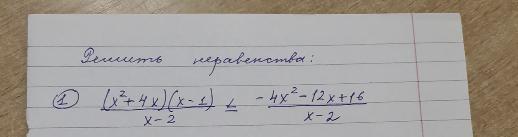 Решить неравенства:
① (x²+4x)(x-1)/(x-2) ≤ (-4x²-12x+16)/(x-2)